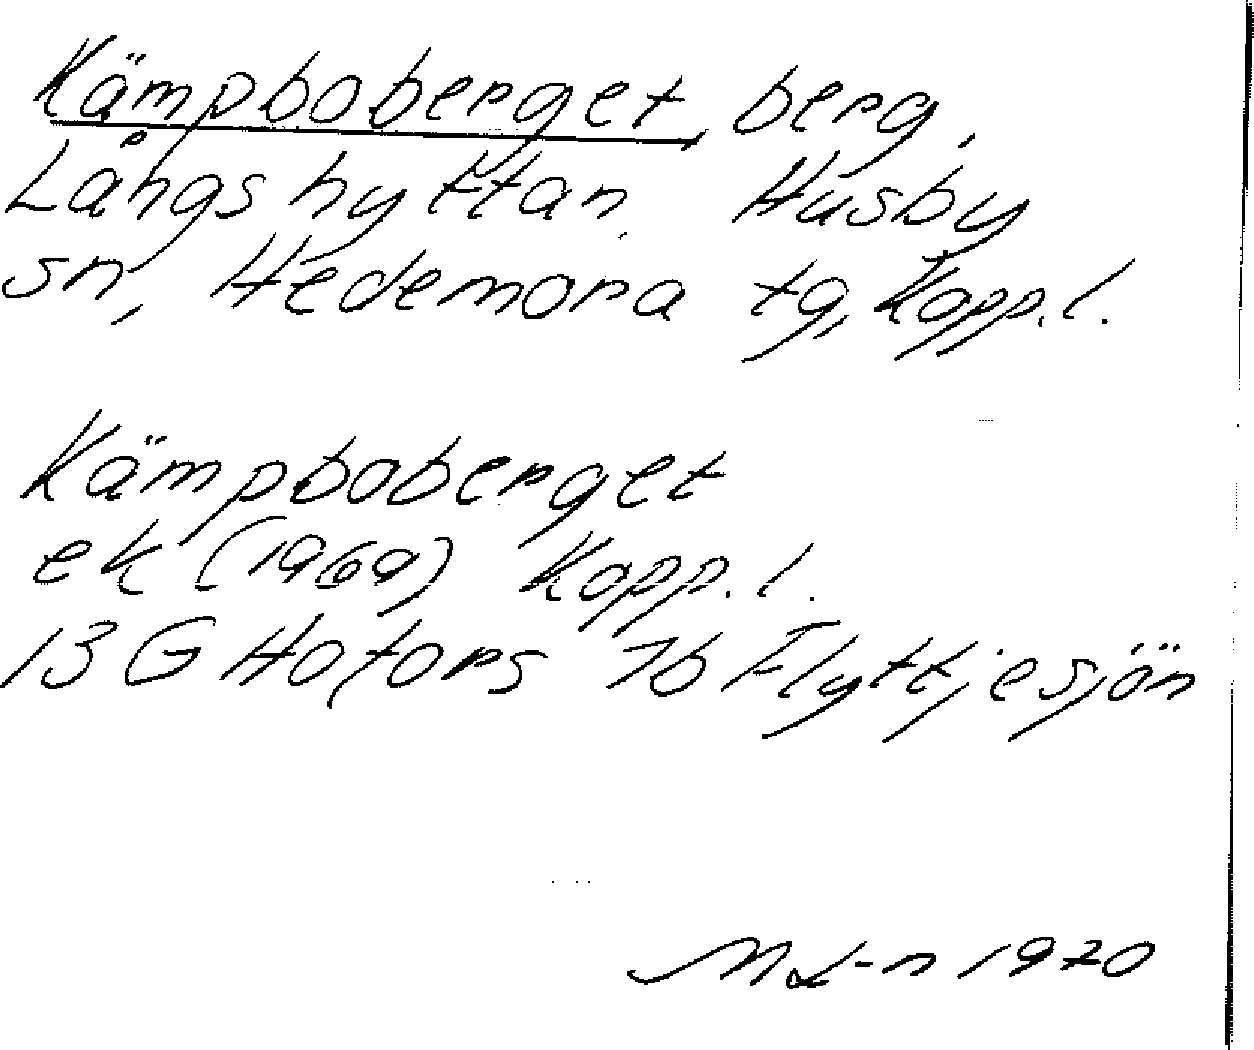 Kämpboberget, berg,
Långshyttan, Husby
sn, Hedemora tg, Kopp. l.
Kämpboberget
ek (1969) Kopp. l.
13 G Hofors 7b Flyttjesjön
M L-n 1970